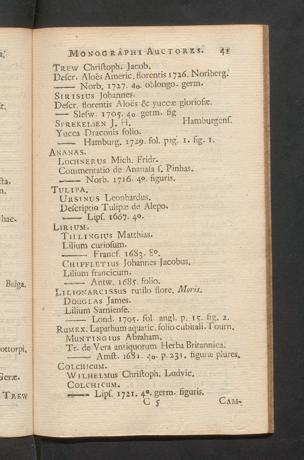 MONOGRAPHI AUCTORES. 41
TREW Christoph. Jacob.
Descr. Aloës Americ, florentis 1726. Noriberg.
—— Norb, 1727. 4o. oblongo. germ.
SIRISIUS Johannes.
Descr. florentis Aloës & yuccæ gloriosæ.
—— Slesw. 1705. 4o. germ. fig
SPREKELSEN J. H. Hamburgens.
Yucca Draconis folio.
—— Hamburg. 1729. fol. pag. 1. fig. 1.
ANANAS.
LOCHNERUS Mich. Fridr.
Commentatio de Ananasa s. Pinhas.
—— Norb. 1716. 4o. figuris.
TULIPA.
URSINUS Leonhardus.
Descriptio Tulipæ de Alepo.
—— Lips. 1667. 4o.
LIRIUM.
TILLINGIUS Matthias.
Lilium curiosum.
—— Francf. 1683. 8o.
CHIFFLETIUS Johannes Jacobus.
Lilium francicum.
—— Antw. 1685. folio.
LILIONARCISSUS rutilo flore. Moris.
DOUGLAS James.
Lilium Sarniense.
—— Lond. 1705. fol. angl. p. 15. fig. 2.
RUMEX. Lapathum aquatic. folio cubitali. Tourn.
MUNTINGIUS Abraham.
Tr. de Vera antiquorum Herba Britannica.
—— Amst. 1681. 4o. p. 231. figuræ plures.
COLCHICUM.
WILHELMUS Christoph. Ludvic.
COLCHICUM.
—— Lips. 1721. 4o. germ. figuris.
C 5 CAM-
Belga.
TREW